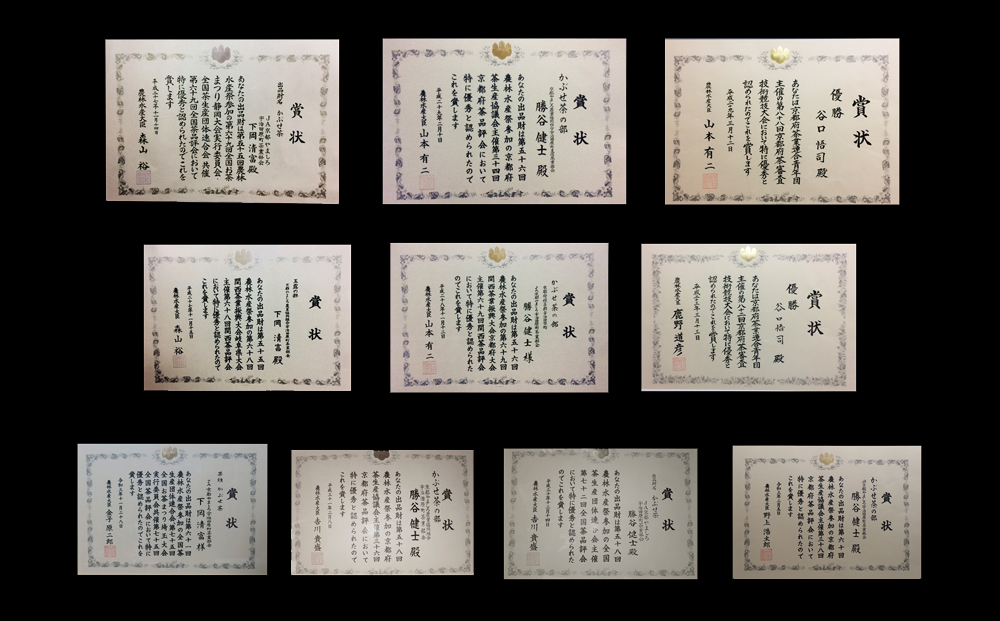 賞状
出品財名 かぶせ茶
下岡 清富 殿
あなたの出品財は第五十五回農林
水産祭参加の第六十九回全国お茶
まつり静岡大会実行委員会
全国茶生産団体連合会 共催
第六十九回全国茶品評会において
特に優秀と認められたのでこれを
賞します
農林水産大臣 森山 裕
賞状
かぶせ茶の部
勝谷 健士 殿
あなたの出品財は第五十六回
農林水産祭参加の京都府
茶生産協議会主催第三十四回
京都府茶品評会において
特に優秀と認められたので
これを賞します
農林水産大臣 山本 有二
賞状
優勝
谷口 悟司 殿
あなたは京都府茶業連合青年団
主催の第八十八回京都府茶審査
技術競技大会において特に優秀と
認められたのでこれを賞します
平成二十九年三月十二日
農林水産大臣 山本 有二
賞状
下岡 清富 殿
あなたの出品財は第五十五回
農林水産祭参加の第六十八回
関西茶業振興大会岐阜県大会
主催第六十八回関西茶品評会
において特に優秀と認められたので
これを賞します
農林水産大臣 森山 裕
賞状
かぶせ茶の部
勝谷 健士 様
あなたの出品財は第五十六回
農林水産祭参加の第六十九回
関西茶業振興大会京都府大会
主催第六十九回関西茶品評会
において特に優秀と認められた
のでこれを賞します
農林水産大臣 山本 有二
賞状
優勝
谷口 悟司 殿
あなたは京都府茶業連合青年団
主催の第八十三回京都府茶審査
技術競技大会において特に優秀と
認められたのでこれを賞します
農林水産大臣 鹿野 道彦
賞状
茶種 かぶせ茶
下岡 清富 様
あなたの出品財は第六十一回
農林水産祭参加の全国茶
生産団体連合会第七十五回
全国お茶まつり埼玉大会
実行委員会共催第七十五回
全国茶品評会において特に
優秀と認められたのでこれを
賞します
農林水産大臣 金子 原二郎
賞状
かぶせ茶の部
勝谷 健士 殿
あなたの出品財は第五十八回
農林水産祭参加の京都府
茶生産協議会主催第三十六回
京都府茶品評会において
特に優秀と認められたので
これを賞します
農林水産大臣 吉川 貴盛
賞状
かぶせ茶
勝谷 健士 殿
あなたの出品財は第五十八回
農林水産祭参加の全国
茶生産団体連合会主催
第七十二回全国茶品評会
において特に優秀と認められた
のでこれを賞します
農林水産大臣 吉川 貴盛
賞状
かぶせ茶の部
勝谷 健士 殿
あなたの出品財は第六十回
農林水産祭参加の京都府
茶生産協議会主催第三十八回
京都府茶品評会において
特に優秀と認められたので
これを賞します
農林水産大臣 野上 浩太郎